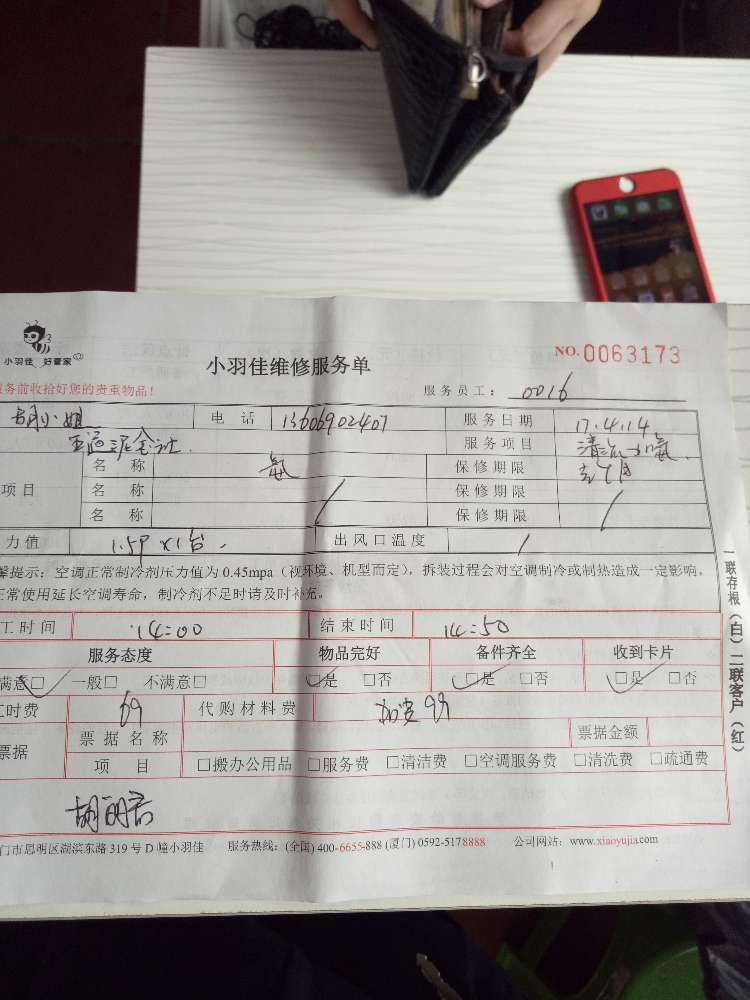 小羽佳 好管家
小羽佳维修服务单
NO.0063173
服务前收拾好您的贵重物品！
服务员工：0016
小姐 电话 13606902407 服务日期 17.4.14
服务项目 清洗加氟
项目 名称 氟 保修期限
名称 保修期限
名称 保修期限
力值 1.5P×1台. 出风口温度
馨提示：空调正常制冷剂压力值为 0.45mpa（视环境、机型而定），拆装过程会对空调制冷或制热造成一定影响，
正常使用延长空调寿命，制冷剂不足时请及时补充。
工时间 14:00 结束时间 14:50
服务态度 物品完好 备件齐全 收到卡片
满意□ 一般□ 不满意□ □是 □否 □是 □否 □是 □否
工时费 69 代购材料费
票据 票据名称 票据金额
项目 □搬办公用品 □服务费 □清洁费 □空调服务费 □清洗费 □疏通费
门市思明区湖滨东路 319 号 D 幢小羽佳 服务热线：(全国) 400-6655-888 (厦门) 0592-5178888 公司网站：www.xiaoyujia.com
一联存根（白）二联客户（红）